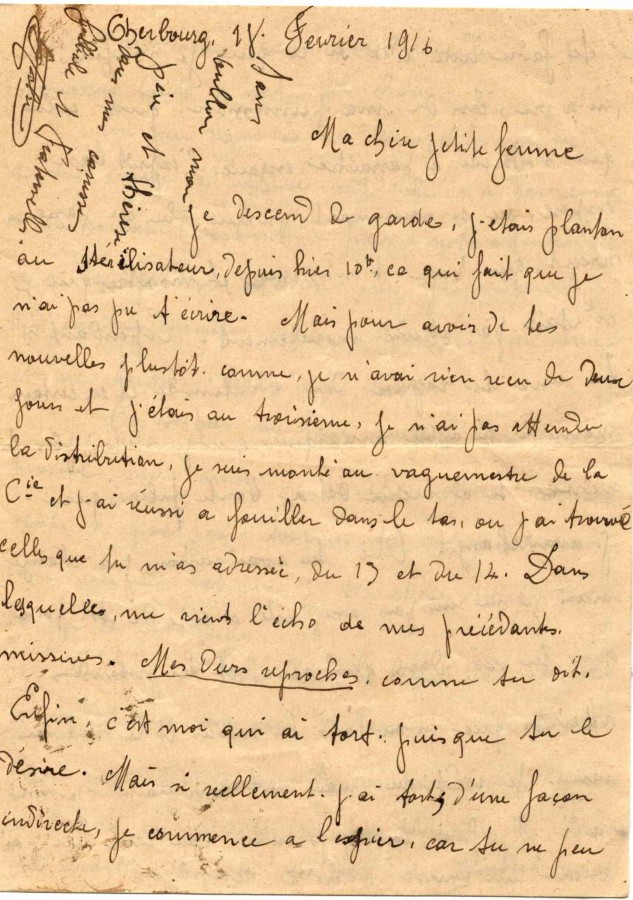 Cherbourg, 18. Fevrier 1916
Ma chère petite femme
Je descend de garde, j'étais planton
au stérilisateur, depuis hier 10h, ce qui fait que je
n'ai pas pu t'écrire. Mais pour avoir de tes
nouvelles plustôt. comme, je n'avai rien reçu de deux
jours et j'étais au troisième, je n'ai pas attendu
la distribution, je suis monté au vaguemestre de la
Cie et j'ai réussi a fouiller dans le tas, ou j'ai trouvé
celles que tu m'as adressée, du 13 et du 14. Dans
lesquelles, me vient l'écho de mes précédantes.
missives. Mes Durs reproches. comme tu dit.
Enfin, c'est moi qui ai tort. puisque tu le
désire. Mais si reellement. j'ai tort, d'une façon
indirecte, je commence a l'expier, car tu ne peu
Sans
oublier mon
Père et Thérèse
mes caresses
et Fraternelles